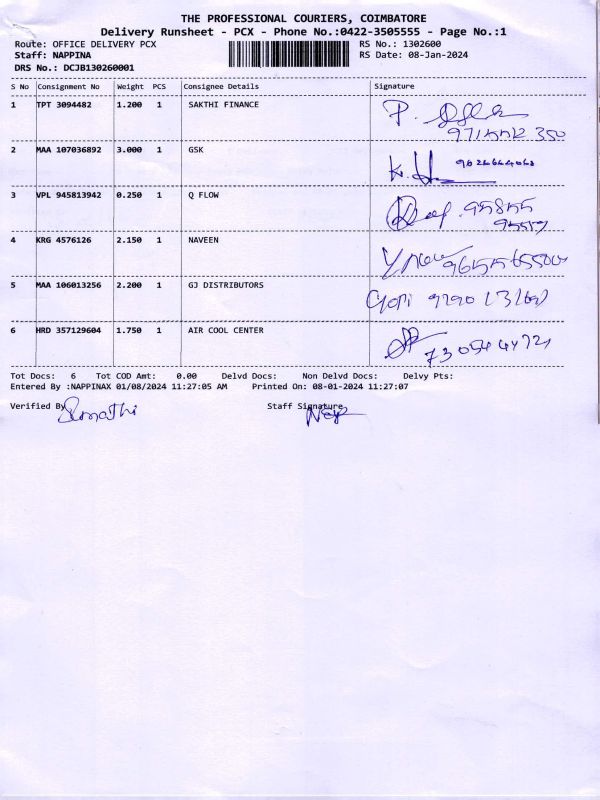 THE PROFESSIONAL COURIERS, COIMBATORE
Delivery Runsheet - PCX - Phone No.:0422-3505555 - Page No.:1
Route: OFFICE DELIVERY PCX RS No.: 1302600
Staff: NAPPINA RS Date: 08-Jan-2024
DRS No.: DCJB130260001
S No Consignment No Weight PCS Consignee Details Signature
1 TPT 3094482 1.200 1 SAKTHI FINANCE P.
2 MAA 107036892 3.000 1 GSK
3 VPL 945813942 0.250 1 Q FLOW
4 KRG 4576126 2.150 1 NAVEEN
5 MAA 106013256 2.200 1 GJ DISTRIBUTORS Gopi
6 HRD 357129604 1.750 1 AIR COOL CENTER
Tot Docs: 6 Tot COD Amt: 0.00 Delvd Docs: Non Delvd Docs: Delvy Pts:
Entered By :NAPPINAX 01/08/2024 11:27:05 AM Printed On: 08-01-2024 11:27:07
Verified By Staff Signature